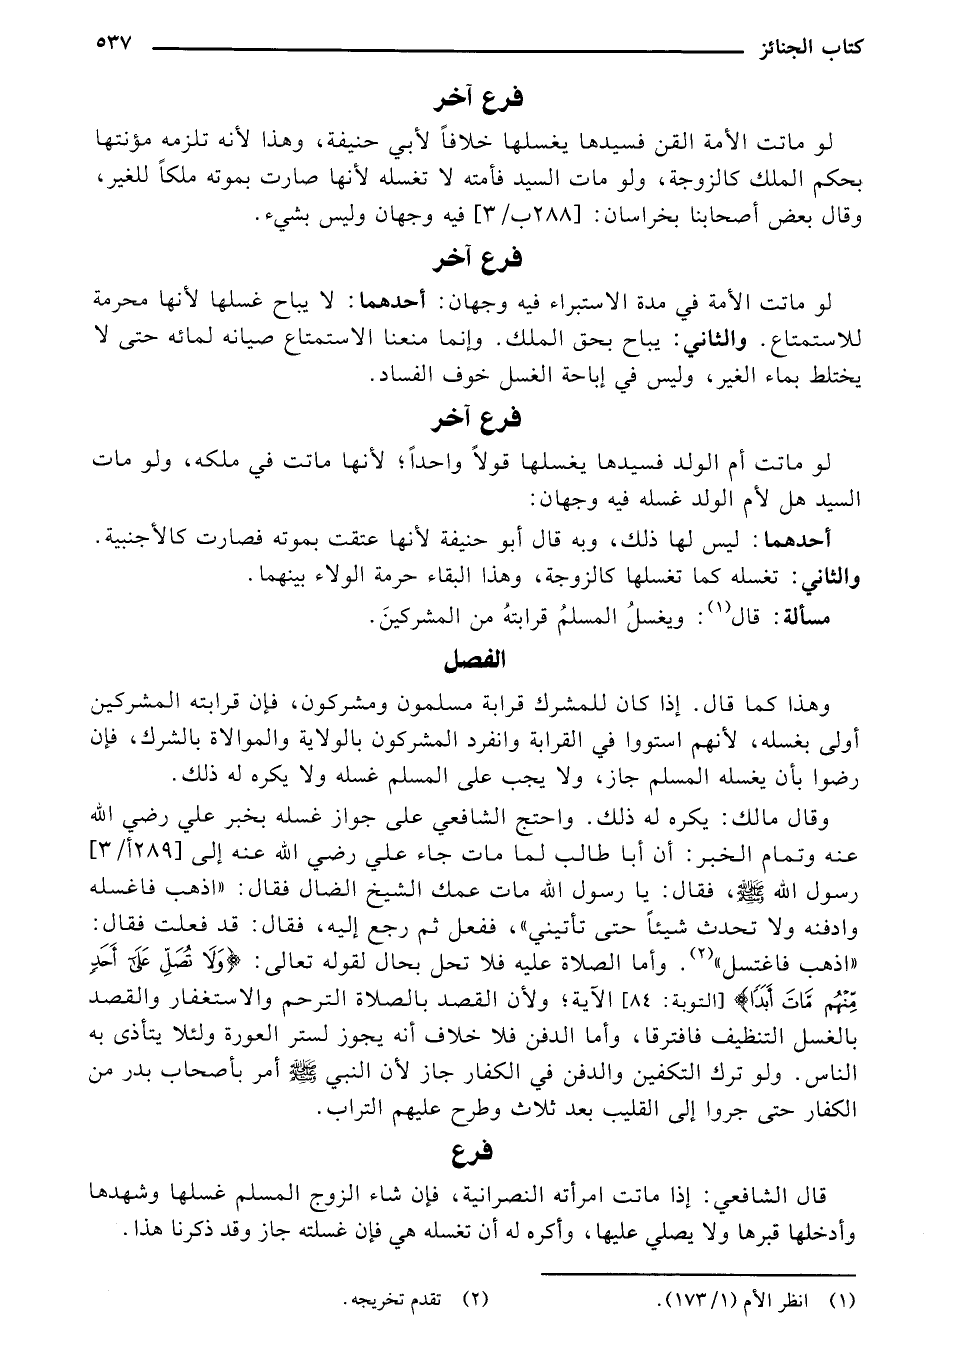 كتاب الجنائز ٥٣٧
فرع آخر
لو ماتت الأمة القن فسيدها يغسلها خلافاً لأبي حنيفة، وهذا لأنه تلزمه مؤنتها
بحكم الملك كالزوجة، ولو مات السيد فأمته لا تغسله لأنها صارت بموته ملكاً للغير،
وقال بعض أصحابنا بخراسان: [٢٨٨ب/٣] فيه وجهان وليس بشيء.
فرع آخر
لو ماتت الأمة في مدة الاستبراء فيه وجهان: أحدهما: لا يباح غسلها لأنها محرمة
للاستمتاع. والثاني: يباح بحق الملك. وإنما منعنا الاستمتاع صيانه لمائه حتى لا
يختلط بماء الغير، وليس في إباحة الغسل خوف الفساد.
فرع آخر
لو ماتت أم الولد فسيدها يغسلها قولاً واحداً؛ لأنها ماتت في ملكه، ولو مات
السيد هل لأم الولد غسله فيه وجهان:
أحدهما: ليس لها ذلك، وبه قال أبو حنيفة لأنها عتقت بموته فصارت كالأجنبية.
والثاني: تغسله كما تغسلها كالزوجة، وهذا البقاء حرمة الولاء بينهما.
مسألة: قال(١): ويغسلُ المسلمُ قرابتهُ من المشركينَ.
الفصل
وهذا كما قال. إذا كان للمشرك قرابة مسلمون ومشركون، فإن قرابته المشركين
أولى بغسله، لأنهم استووا في القرابة وانفرد المشركون بالولاية والموالاة بالشرك، فإن
رضوا بأن يغسله المسلم جاز، ولا يجب على المسلم غسله ولا يكره له ذلك.
وقال مالك: يكره له ذلك. واحتج الشافعي على جواز غسله بخبر علي رضي الله
عنه وتمام الخبر: أن أبا طالب لما مات جاء علي رضي الله عنه إلى [٢٨٩أ/٣]
رسول الله ﷺ، فقال: يا رسول الله مات عمك الشيخ الضال فقال: «اذهب فاغسله
وادفنه ولا تحدث شيئاً حتى تأتيني»، ففعل ثم رجع إليه، فقال: قد فعلت فقال:
«اذهب فاغتسل»(٢). وأما الصلاة عليه فلا تحل بحال لقوله تعالى: ﴿وَلَا تُصَلِّ عَلَىٰٓ أَحَدٍ
مِّنْهُم مَّاتَ أَبَدًا﴾ [التوبة: ٨٤] الآية؛ ولأن القصد بالصلاة الترحم والاستغفار والقصد
بالغسل التنظيف فافترقا، وأما الدفن فلا خلاف أنه يجوز لستر العورة ولئلا يتأذى به
الناس. ولو ترك التكفين والدفن في الكفار جاز لأن النبي ﷺ أمر بأصحاب بدر من
الكفار حتى جروا إلى القليب بعد ثلاث وطرح عليهم التراب.
فرع
قال الشافعي: إذا ماتت امرأته النصرانية، فإن شاء الزوج المسلم غسلها وشهدها
وأدخلها قبرها ولا يصلي عليها، وأكره له أن تغسله هي فإن غسلته جاز وقد ذكرنا هذا.
(١) انظر الأم (١/١٧٣). (٢) تقدم تخريجه.